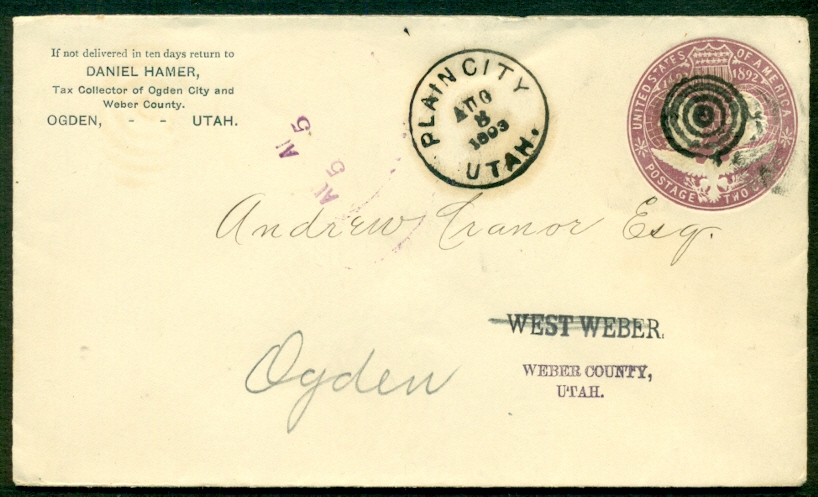 If not delivered in ten days return to
DANIEL HAMER,
Tax Collector of Ogden City and
Weber County.
OGDEN, - - UTAH.
PLAIN CITY
AUG
8
1893
UTAH.
UNITED STATES OF AMERICA
1492 1892
POSTAGE TWO
Andrew Cranor Esq.
WEST WEBER,
WEBER COUNTY,
UTAH.
Ogden